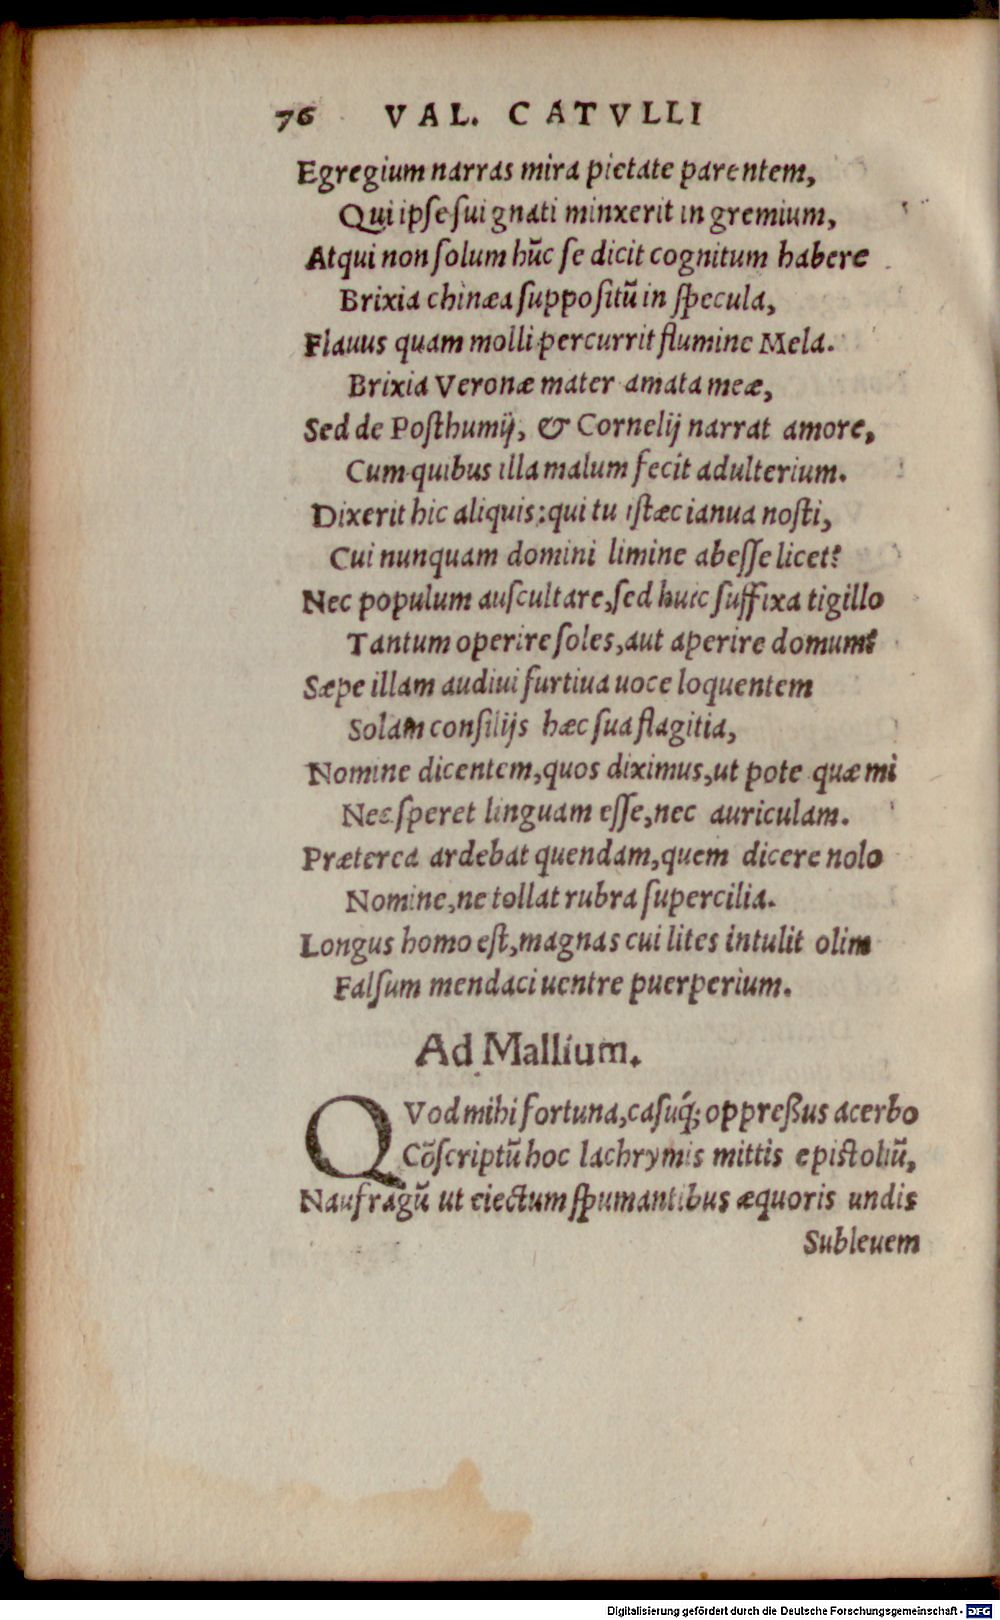 76 VAL. CATVLLI
Egregium narras mira pietate parentem,
Qui ipse sui gnati minxerit in gremium,
Atqui non solum hũc se dicit cognitum habere
Brixia chinæa suppositũ in specula,
Flauus quam molli percurrit flumine Mela.
Brixia Veronæ mater amata meæ,
Sed de Posthumij, & Cornelij narrat amore,
Cum quibus illa malum fecit adulterium.
Dixerit hic aliquis: qui tu istæc ianua nosti,
Cui nunquam domini limine abesse licet?
Nec populum auscultare, sed huic suffixa tigillo
Tantum operire soles, aut aperire domum?
Sæpe illam audiui furtiua uoce loquentem
Solam consilijs hæc sua flagitia,
Nomine dicentem, quos diximus, ut pote quæ mi
Nec speret linguam esse, nec auriculam.
Præterea ardebat quendam, quem dicere nolo
Nomine, ne tollat rubra supercilia.
Longus homo est, magnas cui lites intulit olim
Falsum mendaci uentre puerperium.
Ad Mallium.
QVod mihi fortuna, casuq́; oppreßus acerbo
Cõscriptũ hoc lachrymis mittis epistoliũ,
Naufragũ ut eiectum spumantibus æquoris undis
Subleuem
Digitalisierung gefördert durch die Deutsche Forschungsgemeinschaft - DFG